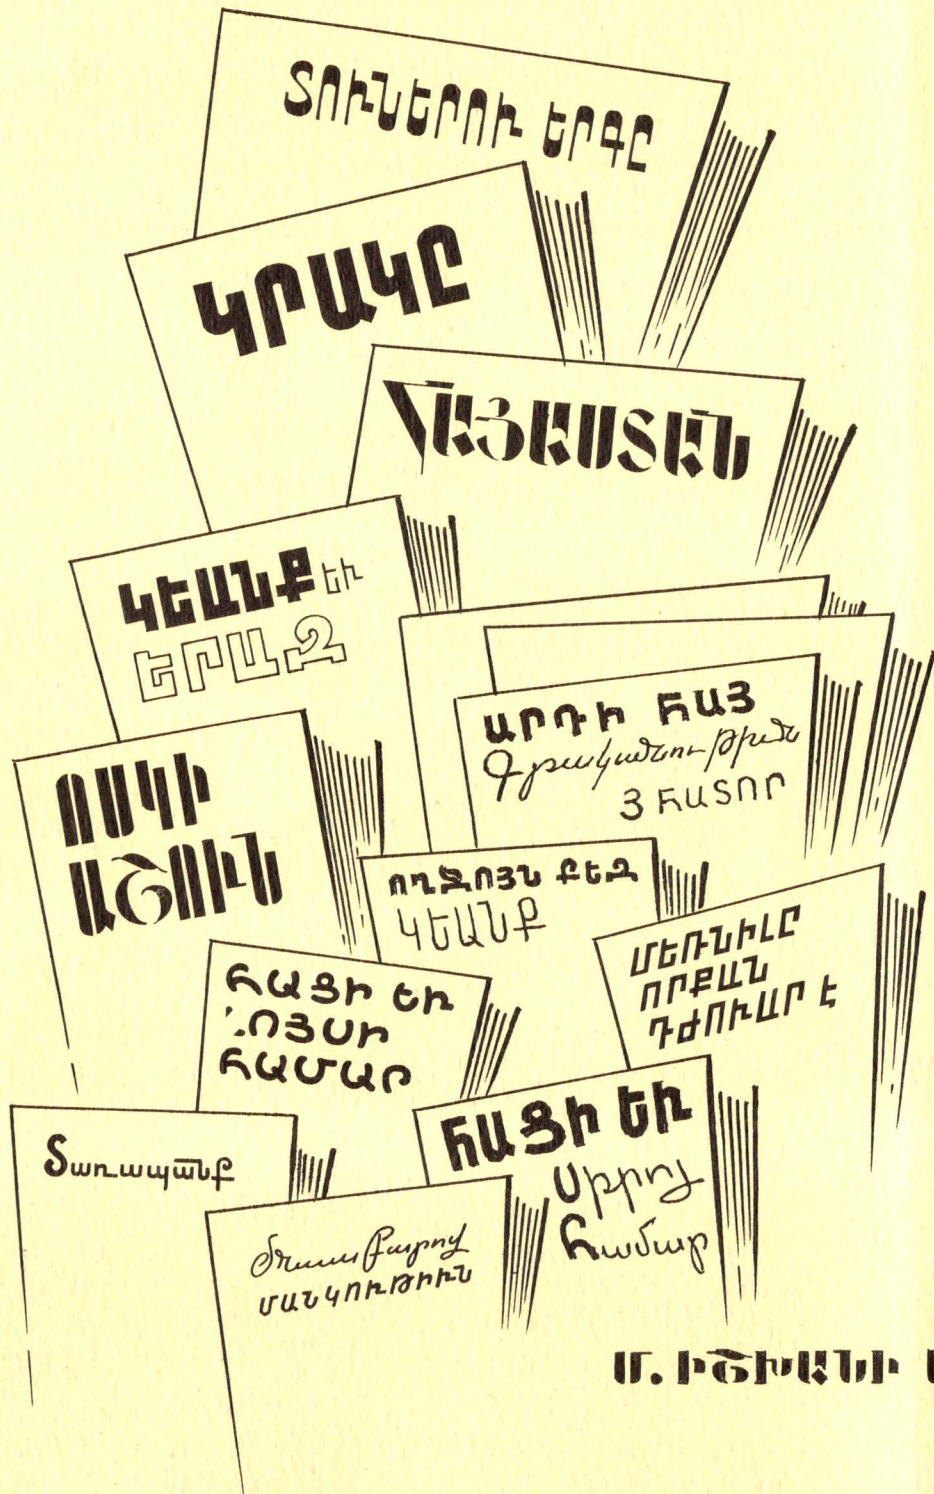 ՏՈՒՆԵՐՈՒ ԵՐԳԸ
ԿՐԱԿԸ
ՀԱՅԱՍՏԱՆ
ԿԵԱՆՔ ԵՒ
ԵՐԱԶ
ԱՐԴԻ ՀԱՅ
Գրականութիւն
3 ՀԱՏՈՐ
ՈՍԿԻ
ԱՇՈՒՆ
ՈՂՋՈՅՆ ՔԵԶ
ԿԵԱՆՔ
ՄԵՌՆԻԼԸ
ՈՐՔԱՆ
ԴԺՈՒԱՐ Է
ՀԱՑԻ ԵՒ
ԼՈՅՍԻ
ՀԱՄԱՐ
ՀԱՑԻ ԵՒ
Սիրոյ
Համար
Տառապանք
Մնաս բարով
ՄԱՆԿՈՒԹԻՒՆ
Մ. ԻՇԽԱՆԻ